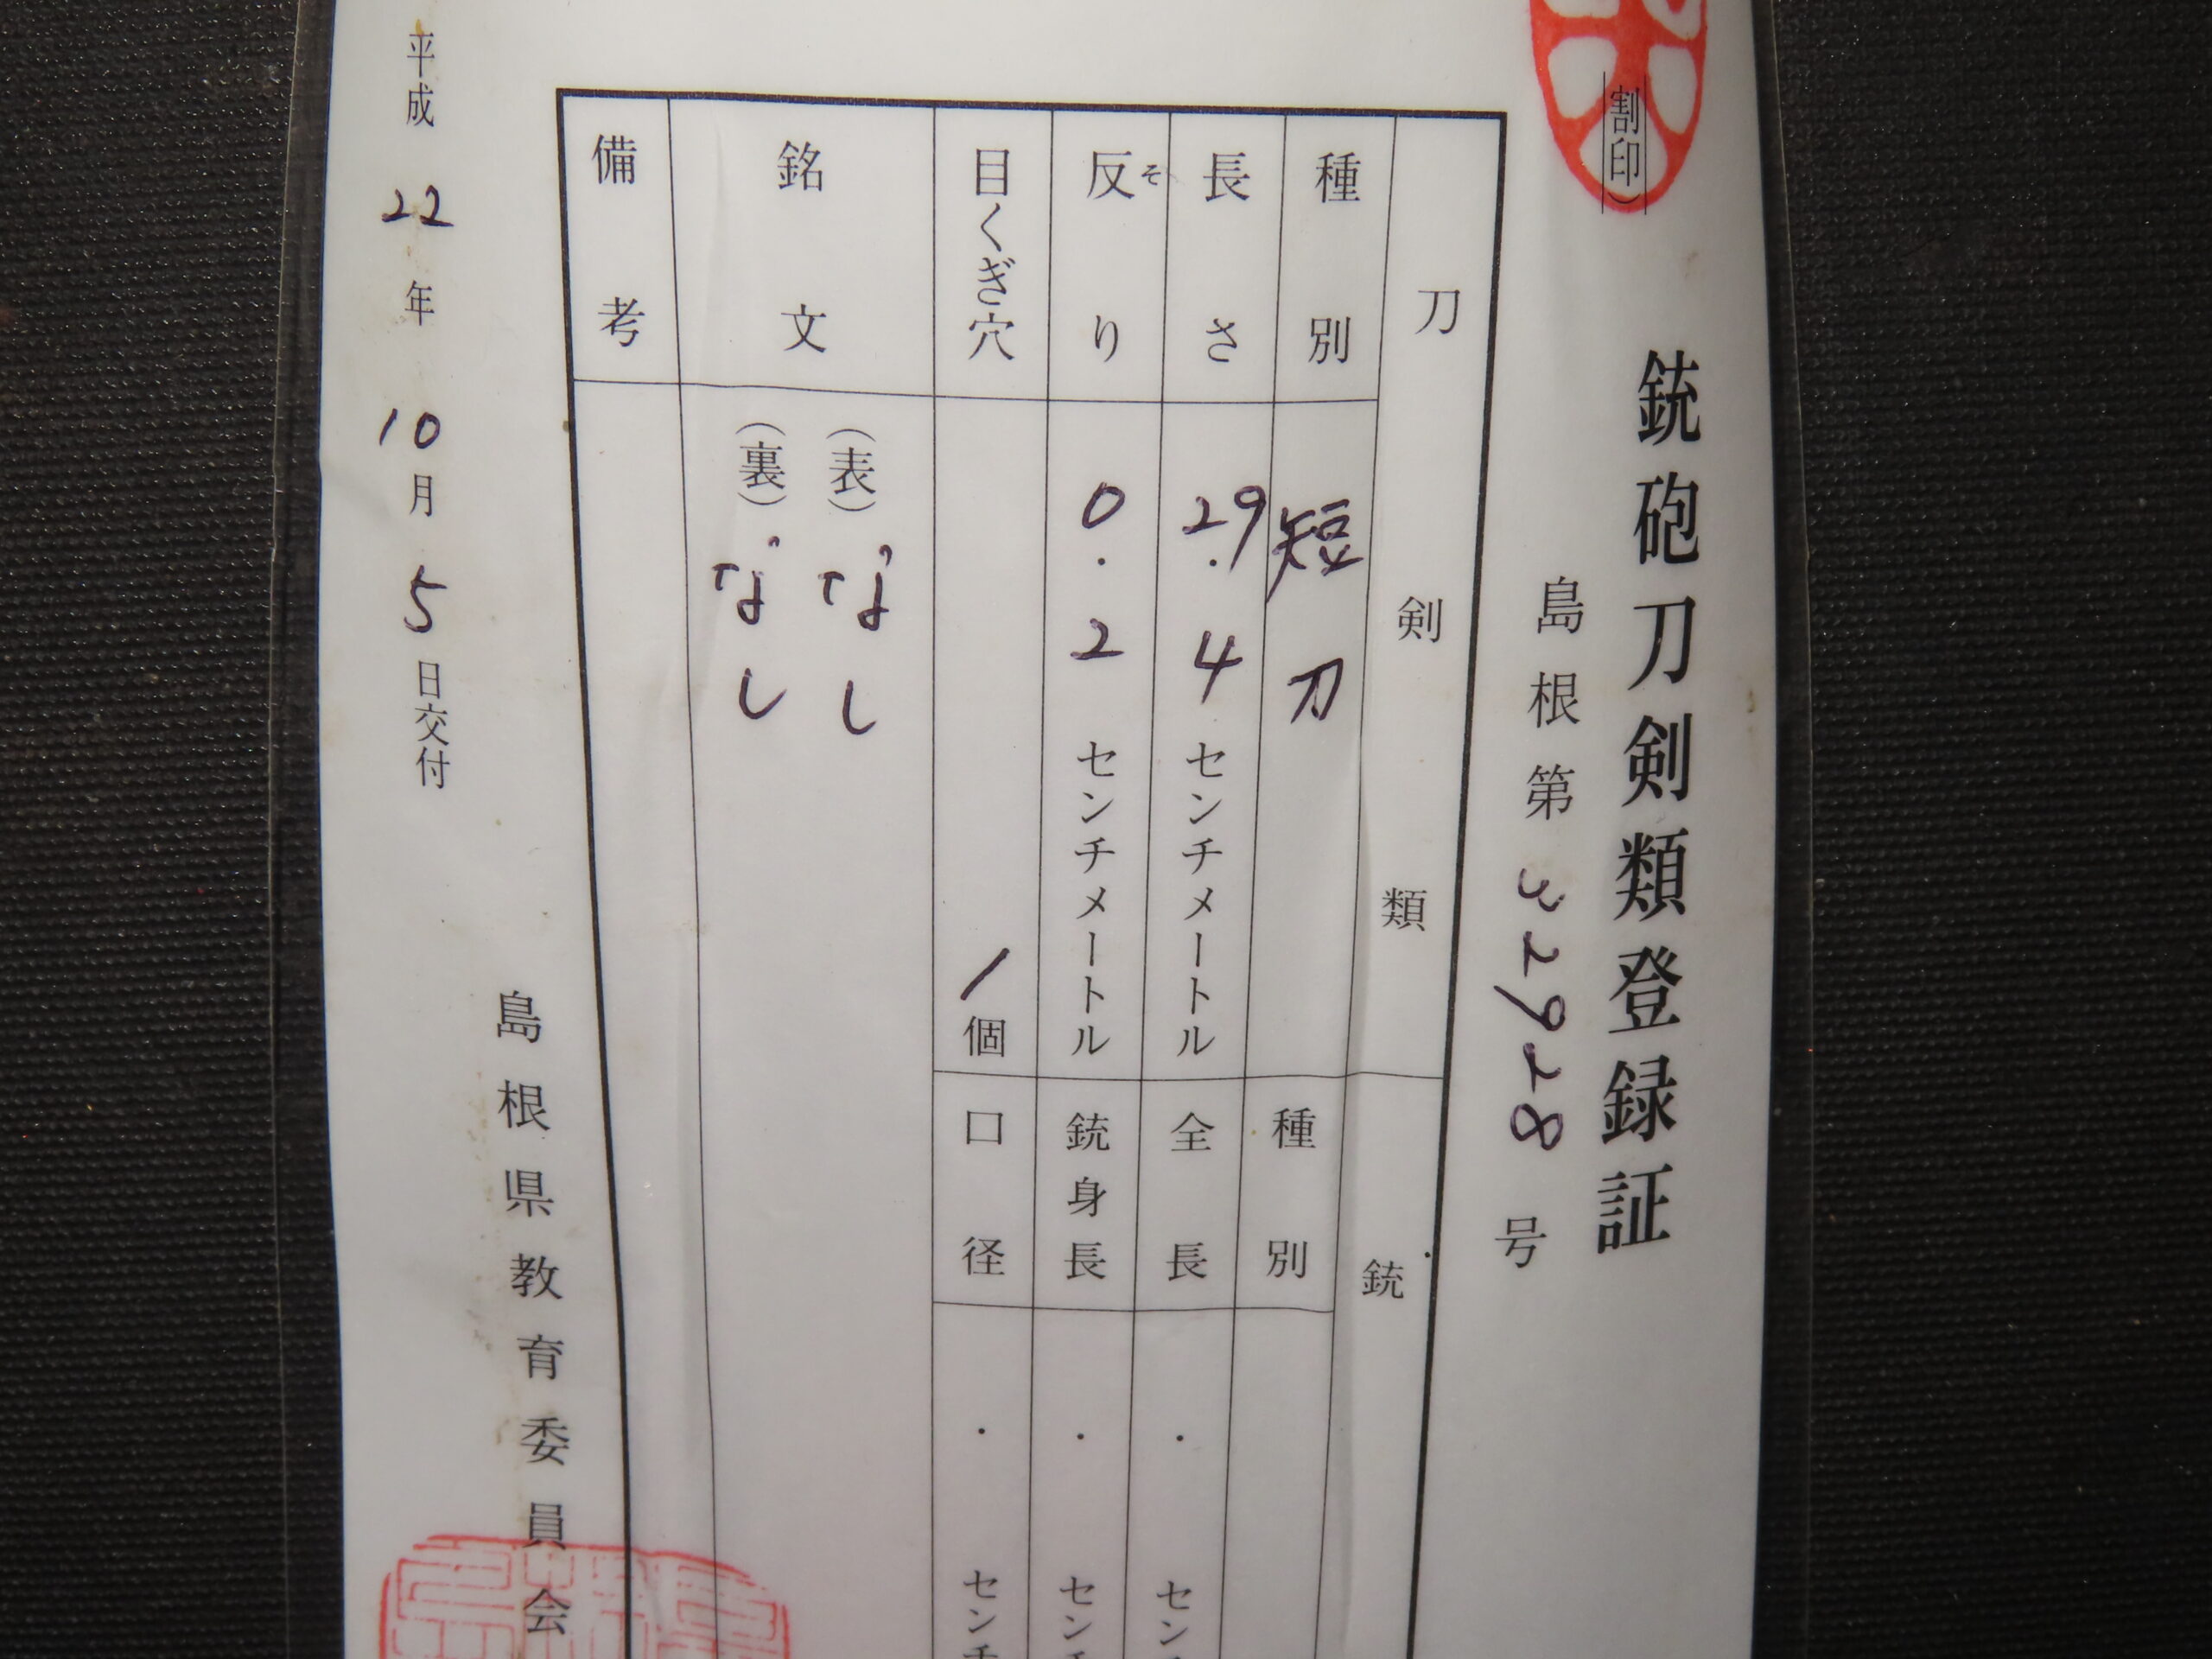 (割印)
銃砲刀剣類登録証
島根第32928号
刀剣類
銃
種別 短刀
種別
長さ 29.4センチメートル
全長 ・ セン
反り 0.2センチメートル
そ
銃身長 ・ センチ
目くぎ穴 1個
口径 ・ センチ
銘文
(表)なし
(裏)なし
備考
島根県教育委員会
平成22年10月5日交付